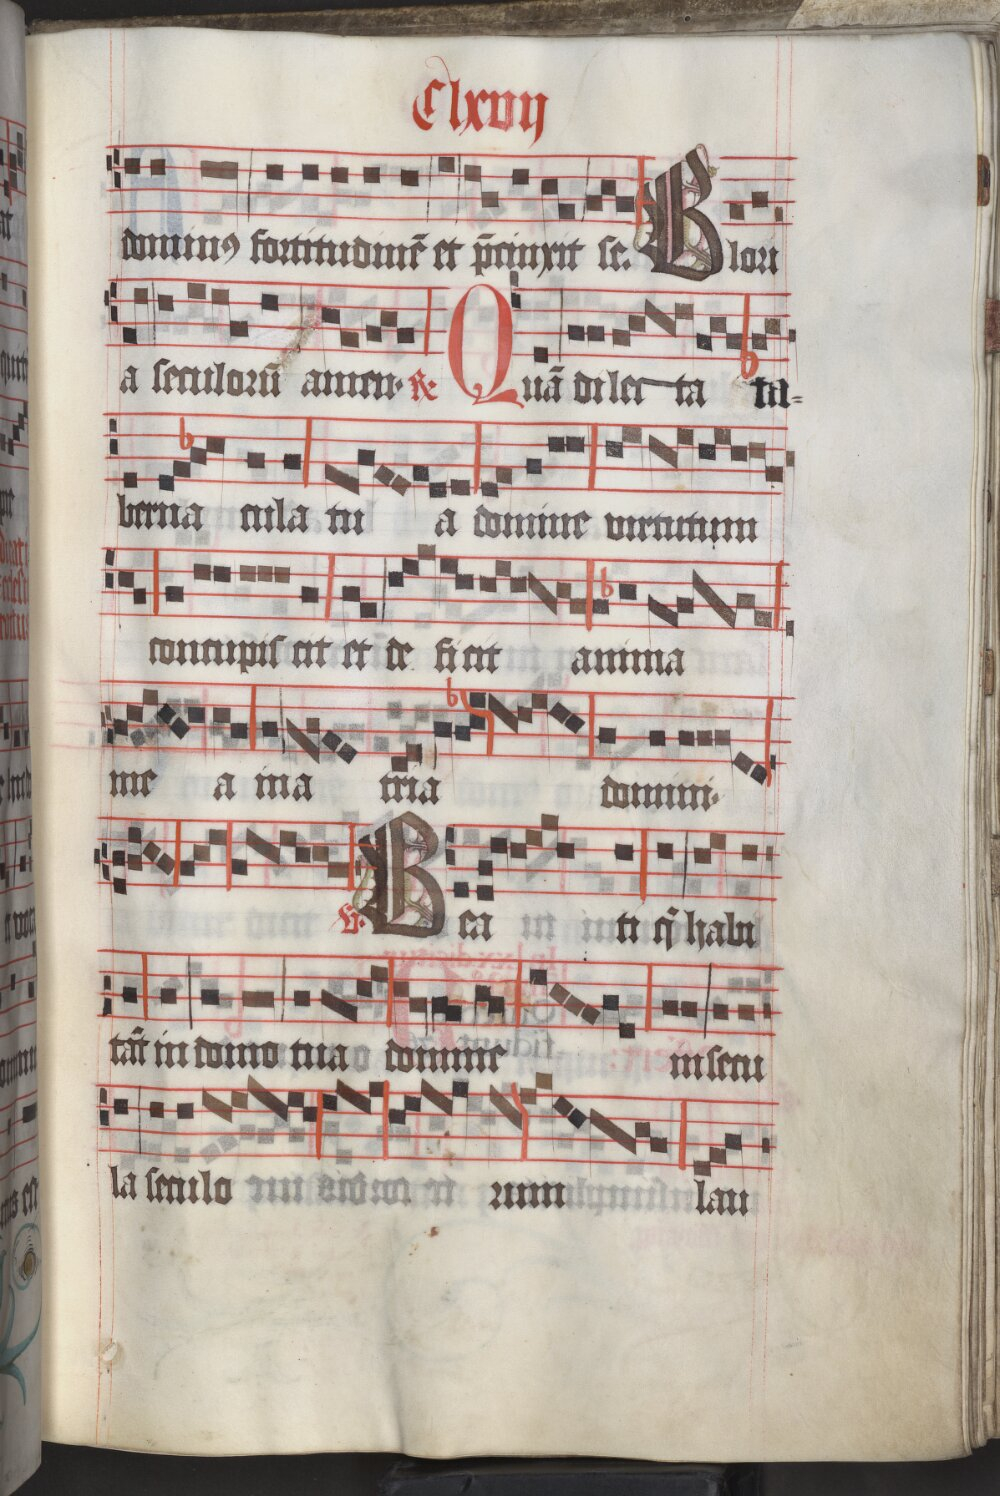 Clxvij
dominꝯ fortitudinē et p̄cinxit se. Glori
a seculorū amen. ℟ Quā dilec ta ta-
berna cula tu a domine virtutum
concupis cit et de ficit anima
me a in a tria domini.
℣. Bea ti q̄ habi
tāt in domo tua domine in secu
la seculo rum lau